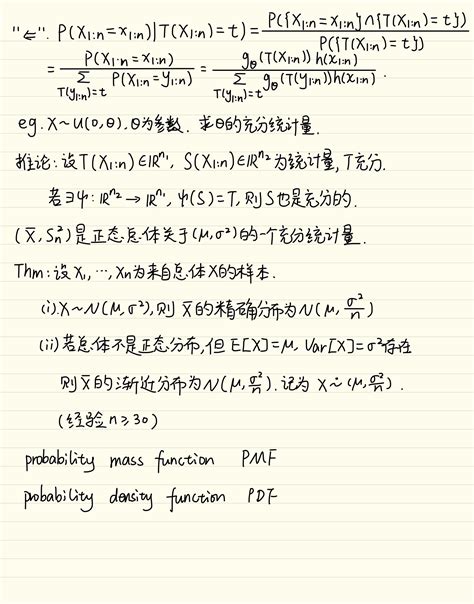 "⇐". P(X₁:ₙ=x₁:ₙ)|T(X₁:ₙ)=t) = P({X₁:ₙ=x₁:ₙ}∩{T(X₁:ₙ)=t}) / P({T(X₁:ₙ)=t})
= P(X₁:ₙ=x₁:ₙ) / Σ_{T(y₁:ₙ)=t} P(X₁:ₙ=y₁:ₙ) = g_θ(T(x₁:ₙ))h(x₁:ₙ) / Σ_{T(y₁:ₙ)=t} g_θ(T(y₁:ₙ))h(x₁:ₙ) .
eg. X~U(0,θ). θ为参数. 求θ的充分统计量.
推论: 设T(X₁:ₙ)∈ℝ^{n₁}, S(X₁:ₙ)∈ℝ^{n₂}为统计量, T充分.
若∃ψ: ℝ^{n₂}→ℝ^{n₁}, ψ(S)=T, 则S也是充分的.
(X̄, Sₙ²)是正态总体关于(μ,σ²)的一个充分统计量.
Thm: 设X₁, ⋯, Xₙ为来自总体X的样本.
(i) X~N(μ,σ²), 则 X̄的精确分布为N(μ, σ²/n)
(ii) 若总体不是正态分布, 但 E[X]=μ, Var[X]=σ²存在
则X̄的渐近分布为N(μ, σ²/n). 记为 X ∼̇ (μ, σ²/n) .
(经验 n≥30)
probability mass function PMF
probability density function PDF